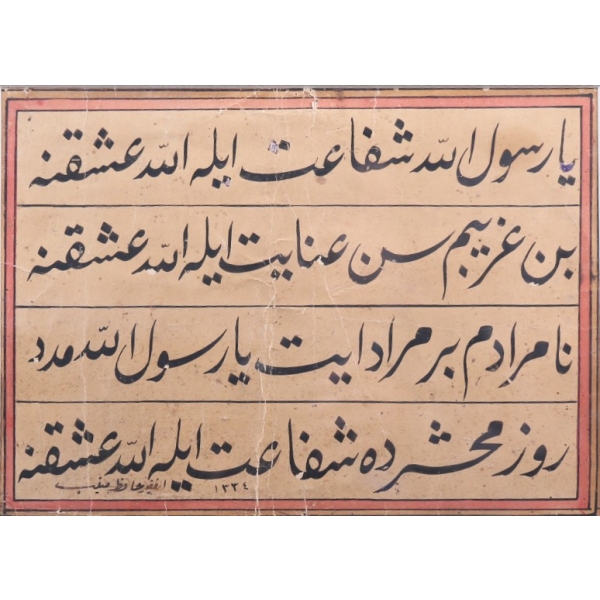 یا رسول الله شفاعت ایله الله عشقنه
بن غریبم سن عنایت ایله الله عشقنه
نامرادم بر مراد ایت یا رسول الله مدد
روز محشرده شفاعت ایله الله عشقنه
١٣٣٤